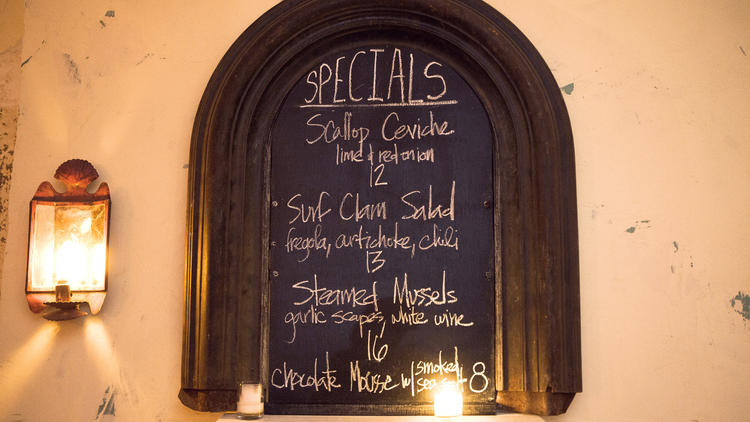 SPECIALS
Scallop Ceviche
lime & red onion
12
Surf Clam Salad
fregola, artichoke, chili
13
Steamed Mussels
garlic scapes, white wine
16
chocolate Mousse w/ smoked sea salt 8